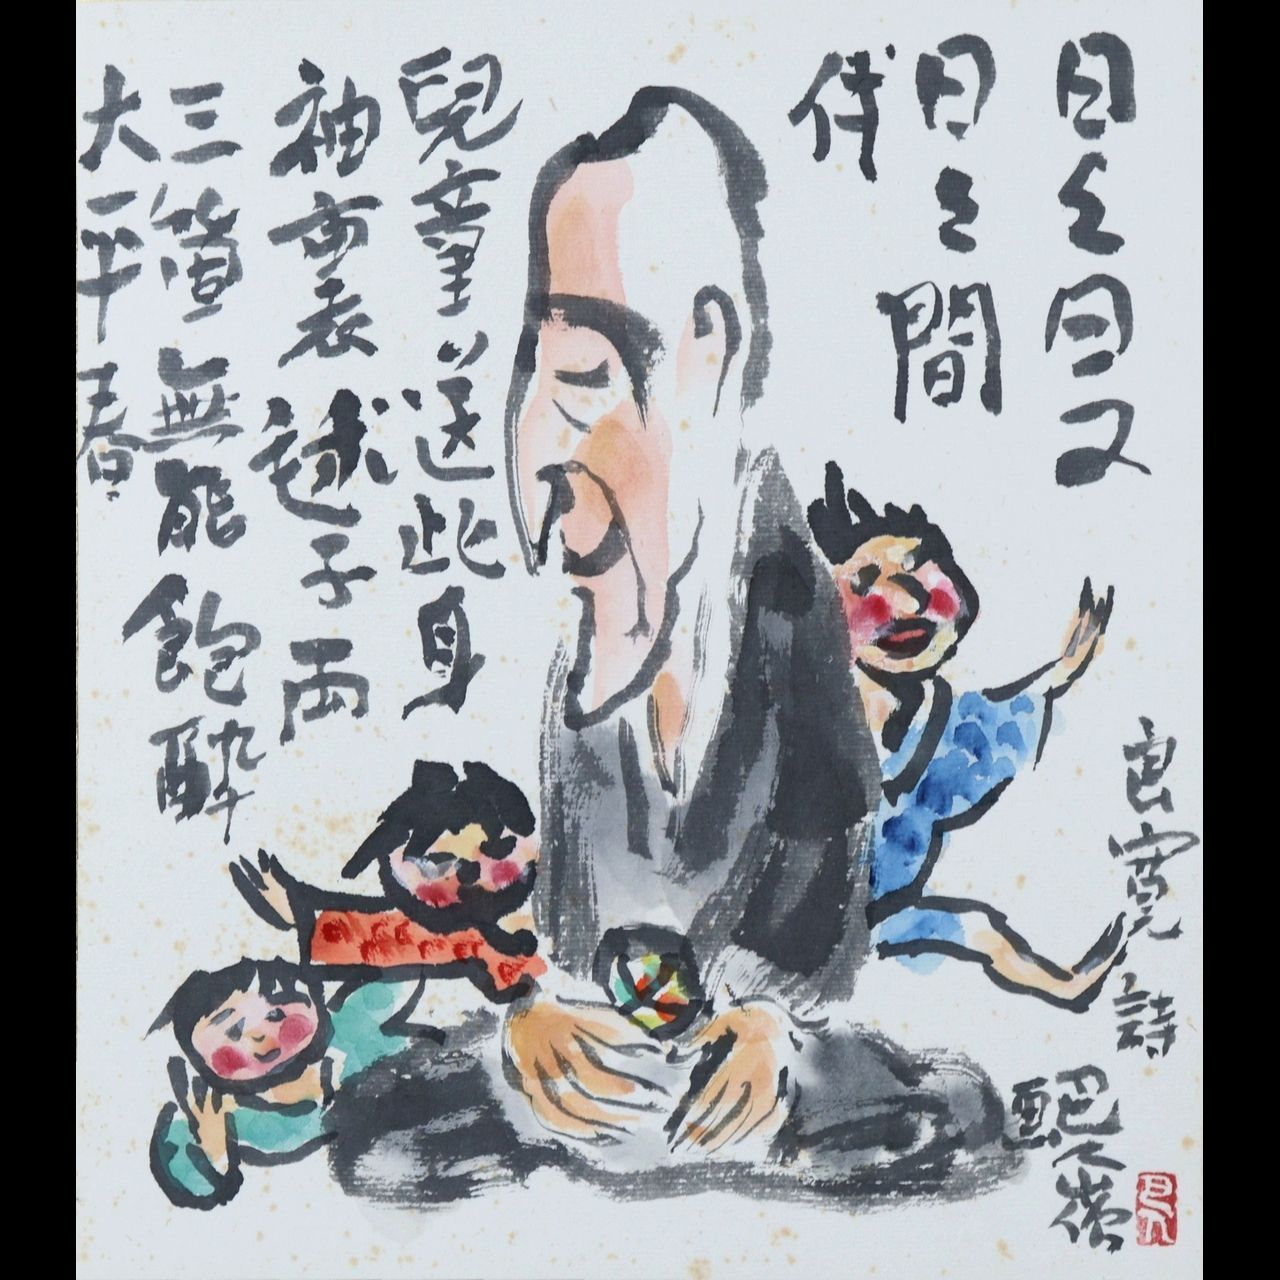 日々日又
日々間
伴
兒童送此身
袖裏毬子兩
三箇無能飽醉
大平春
良寛詩